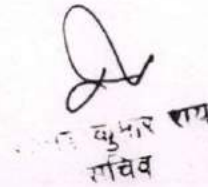 कुमार राय
सचिव